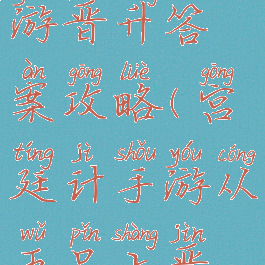 游晋升答
àn gōng lüè gōng
案攻略(宫
tíng jì shǒu yóu cóng
廷计手游从
wǔ pǐn shàng jìn